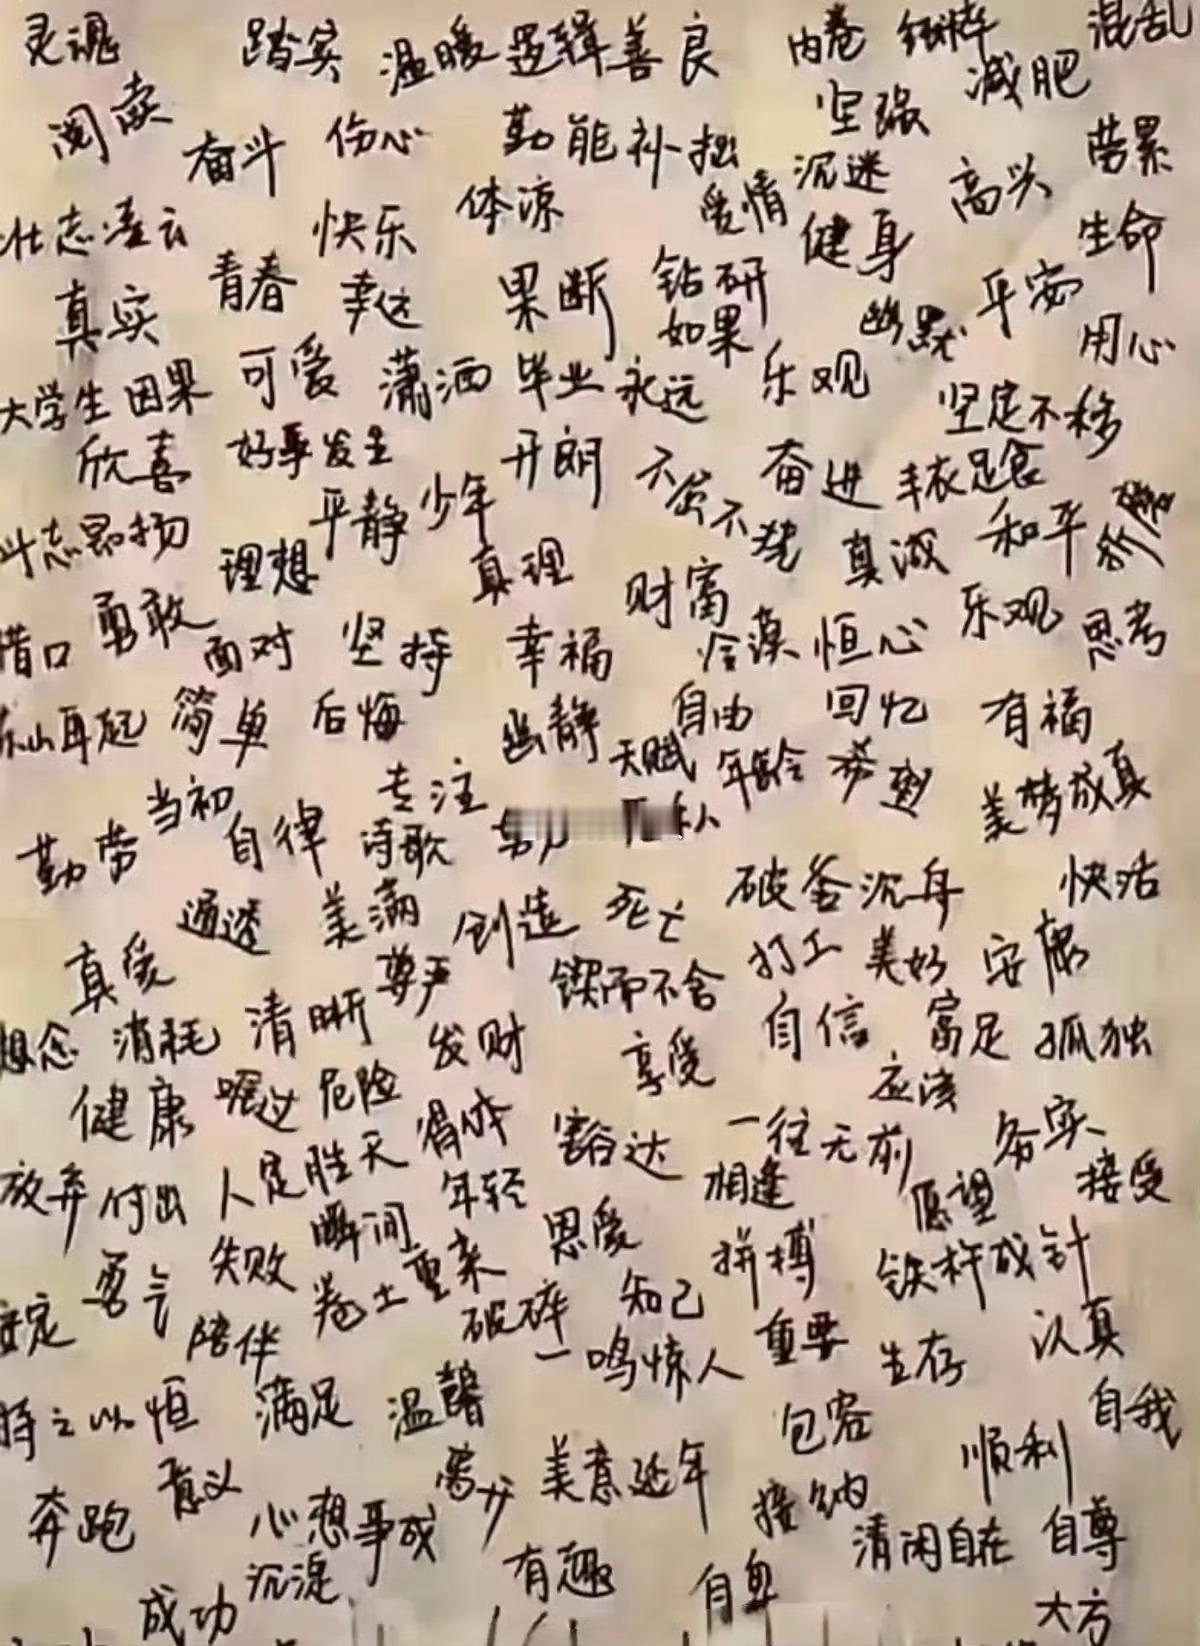 灵魂 踏实 温暖 逻辑 善良 内卷 纯粹 混乱
阅读 奋斗 伤心 勤能补拙 坚强 减肥
体凉 爱情 沉迷 高兴 劳累
壮志凌云 快乐 健身 生命
真实 青春 幸运 果断 钻研 如果 幽默 平安 用心
大学生 因果 可爱 潇洒 毕业 永远 乐观 坚定不移
欣喜 好事发生 开朗 不卑不 奋进 丰衣足食
斗志昂扬 平静 少年 真诚 和平
理想 真理 财富
借口 勇敢 面对 坚持 幸福 冷漠 恒心 乐观 思考
东山再起 简单 后悔 幽静 自由 回忆 有福
当初 专注 天赋 年龄 美梦成真
勤劳 自律 诗歌
通透 美满 创造 死亡 破釜沉舟 快活
真爱 尊严 锲而不舍 打工 美好 安康
想念 消耗 清晰 发财 享受 自信 富足 孤独
健康 危险 得体 豁达 应该 一往无前 务实
放弃 付出 人定胜天 年轻 相逢 愿望 接受
勇气 失败 瞬间 卷土重来 恩爱 拼搏 铁杵成针
安定 陪伴 破碎 知己 一鸣惊人 重要 生存 认真
持之以恒 满足 温馨 包容 自我
奔跑 意义 心想事成 离开 美意延年 接纳 顺利
清闲自在 自尊
沉淀 有趣 自卑
成功 大方